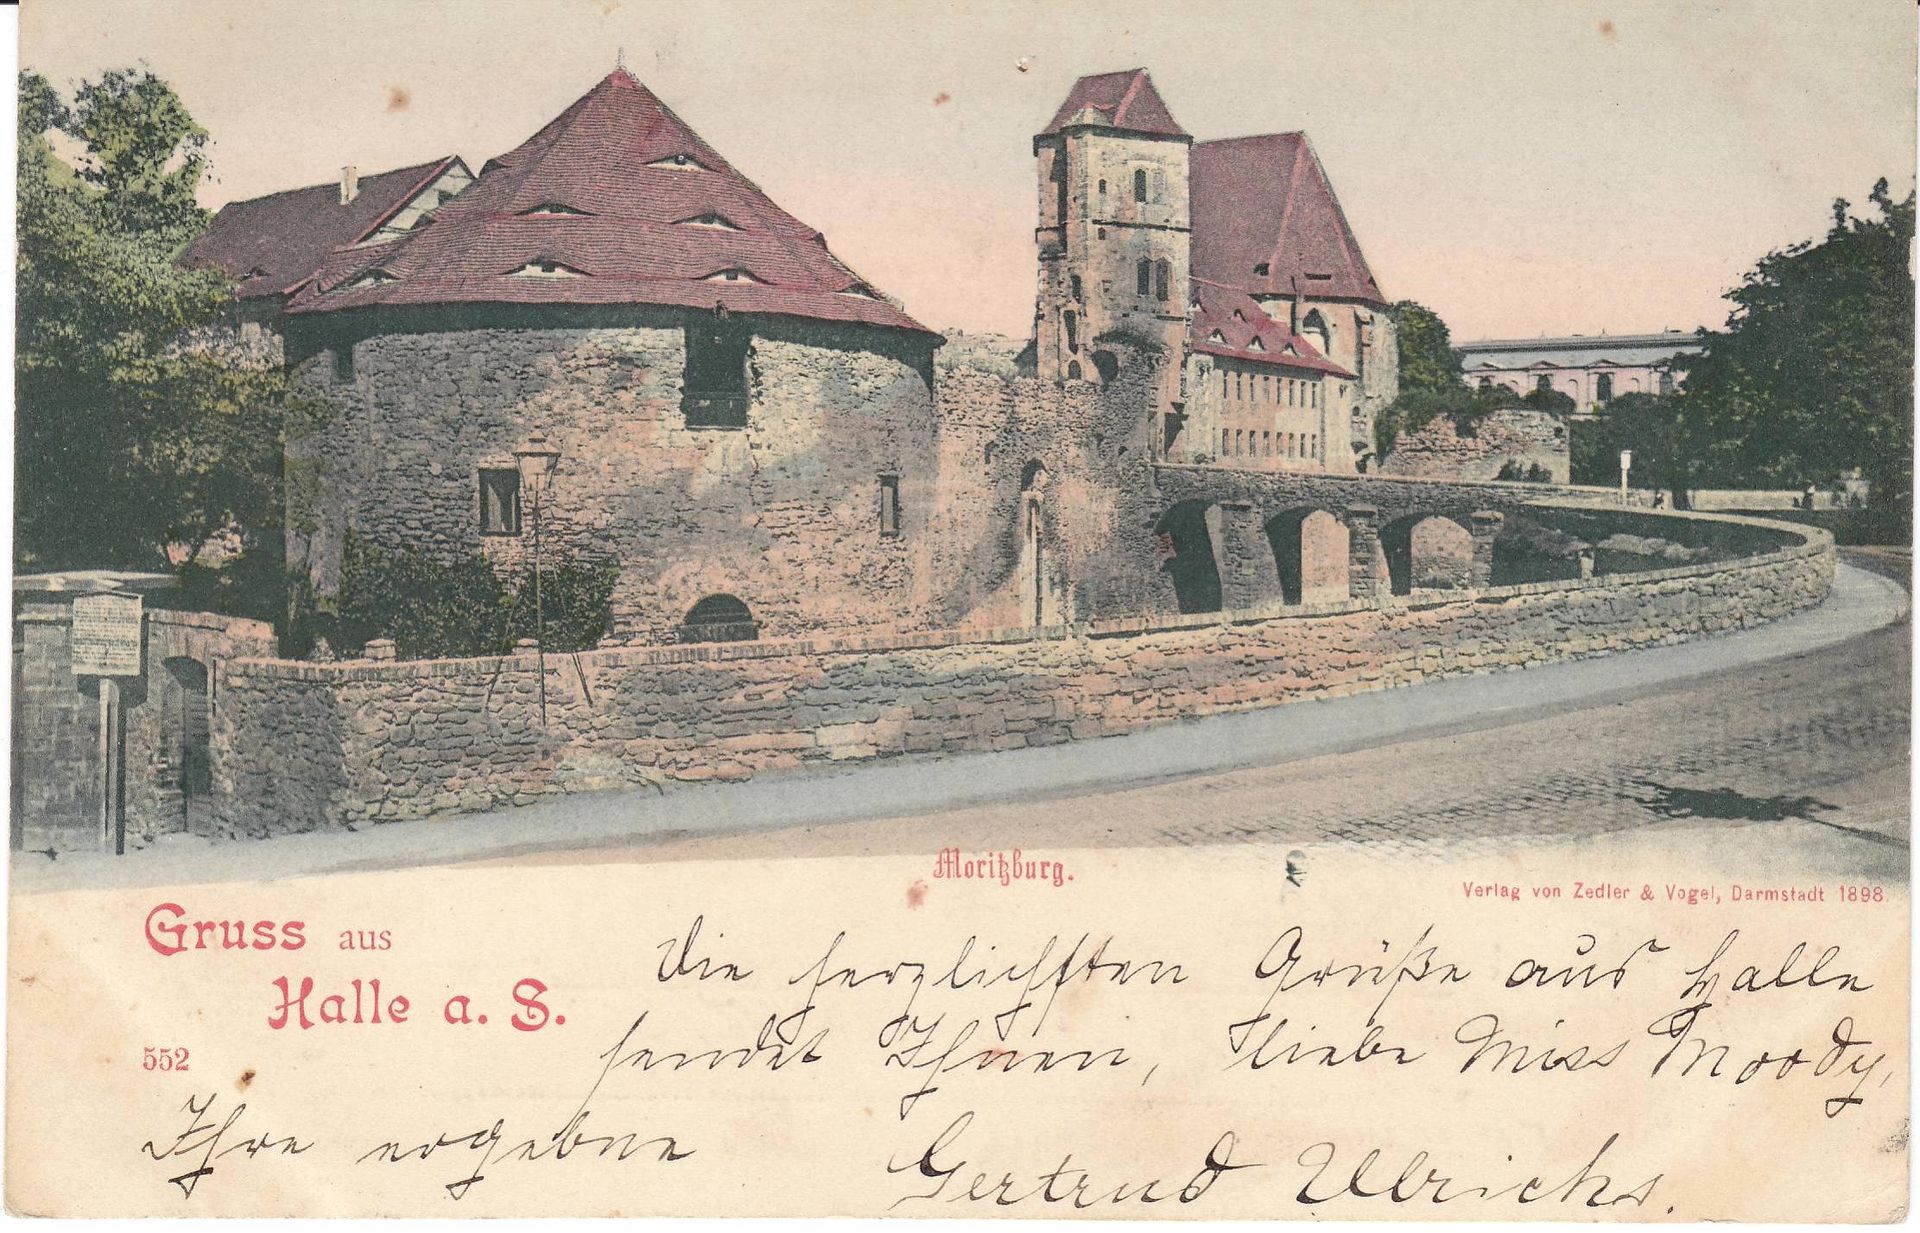 Moritzburg.
Verlag von Zedler & Vogel, Darmstadt 1898.
Gruss aus
Halle a. S.
552
Die herzlichsten Grüße aus Halle
sendet Ihnen, liebe Miss Moody,
Ihre ergebne Gertrud Ulrichs.